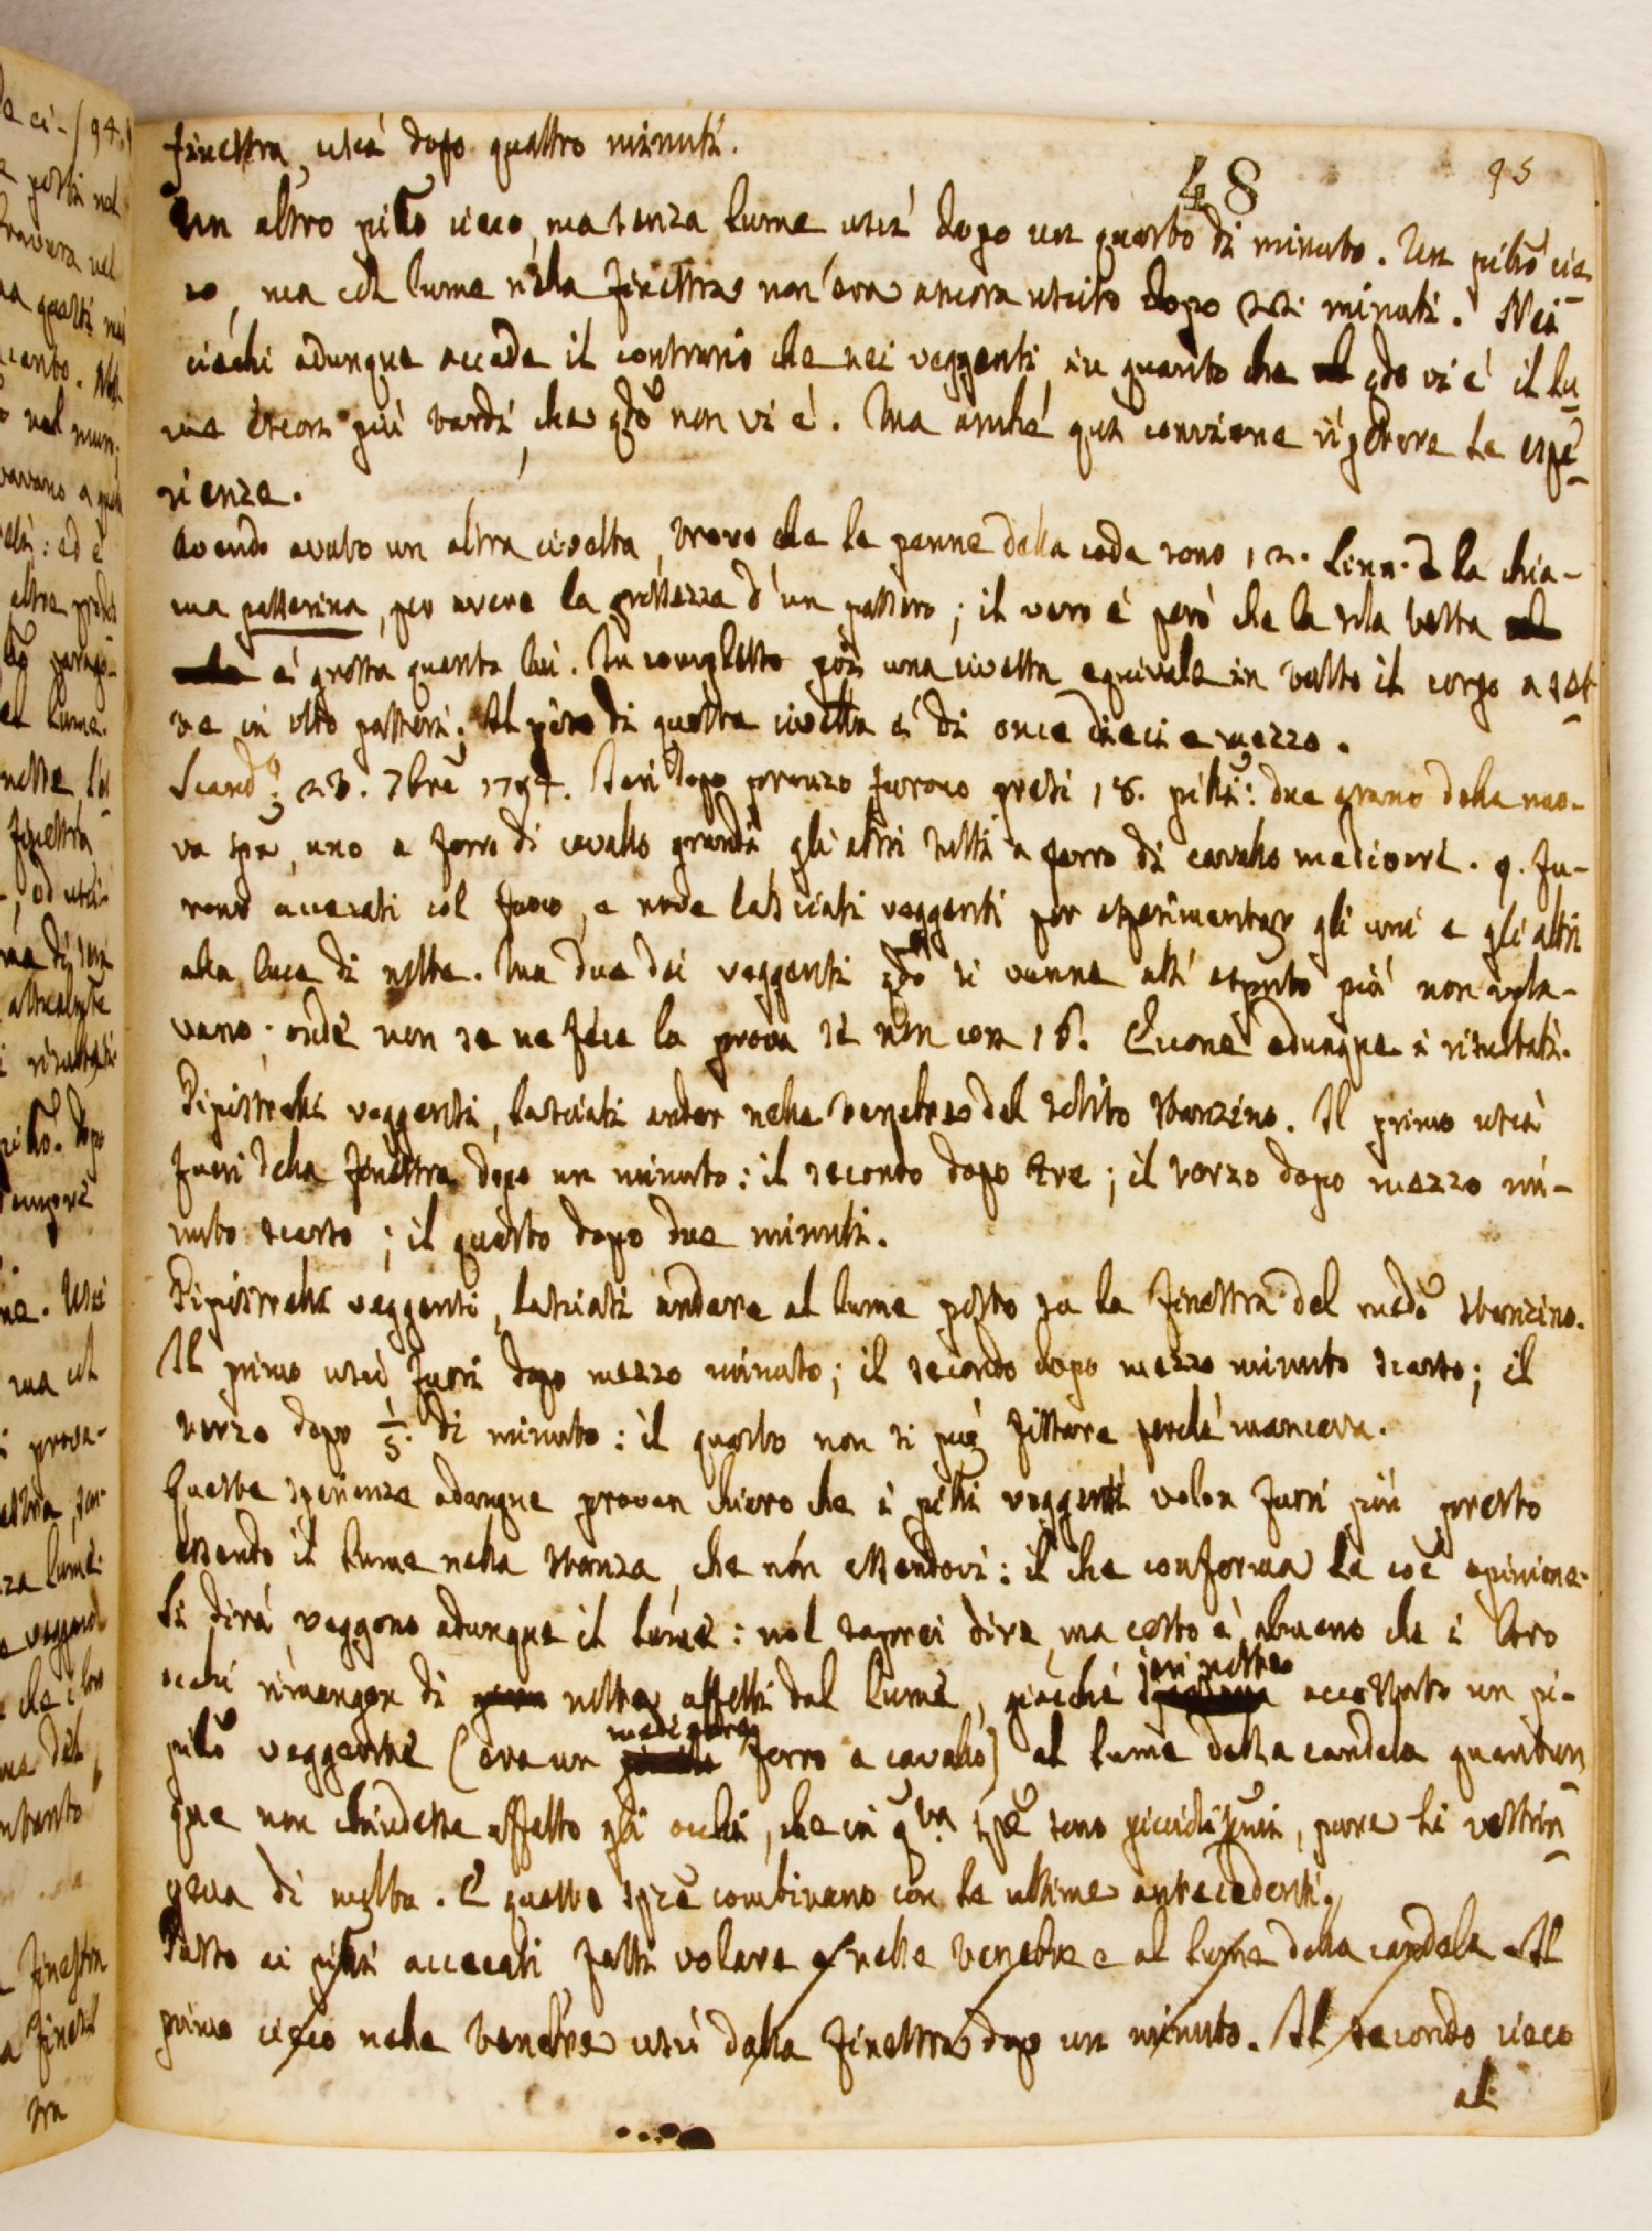 finestra, uscì dopo quattro minuti.
48 95
Un altro pillo cieco, ma senza lume uscì dopo un quarto di minuto. Un pillo cie-
co, ma col lume nella finestra non era ancora uscito dopo minuti. Nei
ciechi adunque accade il contrario che nei veggenti in quanto che qdo vi è il lu-
me escon più tardi, che qdo non vi è. Ma anche qui conviene ripetere le espe-
rienze.
Avendo avuto un altra civetta, trovo che le penne della coda sono 12. Linn. la chia-
ma passerina, per avere la grossezza d'un passero; il vero è però che la sola testa
è grossa quanto lui. In complesso poi una civetta equivale in tutto il corpo a set-
te in otto passeri; Il peso di questa civetta è di once dieci e mezzo.
Scand: 23. 7bre 1794. Ieri dopo pranzo furono presi 18. pilli: due erano della nuo-
va spe, uno a ferro di cavallo grande gli altri tutti a ferro di cavallo mediocri. 9. fu-
rono accecati col fuoco, e nove lasciati veggenti per esperimentar gli uni e gli altri
alla luce di notte. Ma due dei veggenti qdo si venne all' esprto più non vola-
vano: onde non se ne fece la prova se non con 16. Eccone adunque i risultati.
Pipistrelli veggenti, lasciati andar nelle tenebre del solito stanzino. Il primo uscì
fuori della finestra dopo un minuto: il secondo dopo tre; il terzo dopo mezzo mi-
nuto scarso; il quarto dopo due minuti.
Pipistrelli veggenti, lasciati andare al lume posto su la finestra del medo stanzino.
Il primo uscì fuori dopo mezzo minuto; il secondo dopo mezzo minuto scarso; il
terzo dopo 1/5. di minuto: il quarto non si può fissare perché mancava.
Queste sperienze adunque provan chiaro che i pilli veggenti volan fuori più presto
essendo il lume nella stanza, che non essendovi: il che conferma la coe opinione.
Si dirà veggono adunque il lume: nol saprei dire, ma certo è almeno che i loro
occhi rimangon di notte affetti dal lume, giacché jeri notte accostato un pi-
pillo veggente (era un mediocre ferro a cavallo) al lume della candela quantun-
que non chiudesse affatto gli occhi, che in qta spe sono picciolissimi, pure li restrin-
geva di molto. E queste spze combinano con le ultime antecedenti.
Passo ai pilli accecati fatti volare e nelle tenebre e al lume della candela. Il
primo cieco nelle tenebre uscì dalla finestra dopo un minuto. Il secondo cieco
al